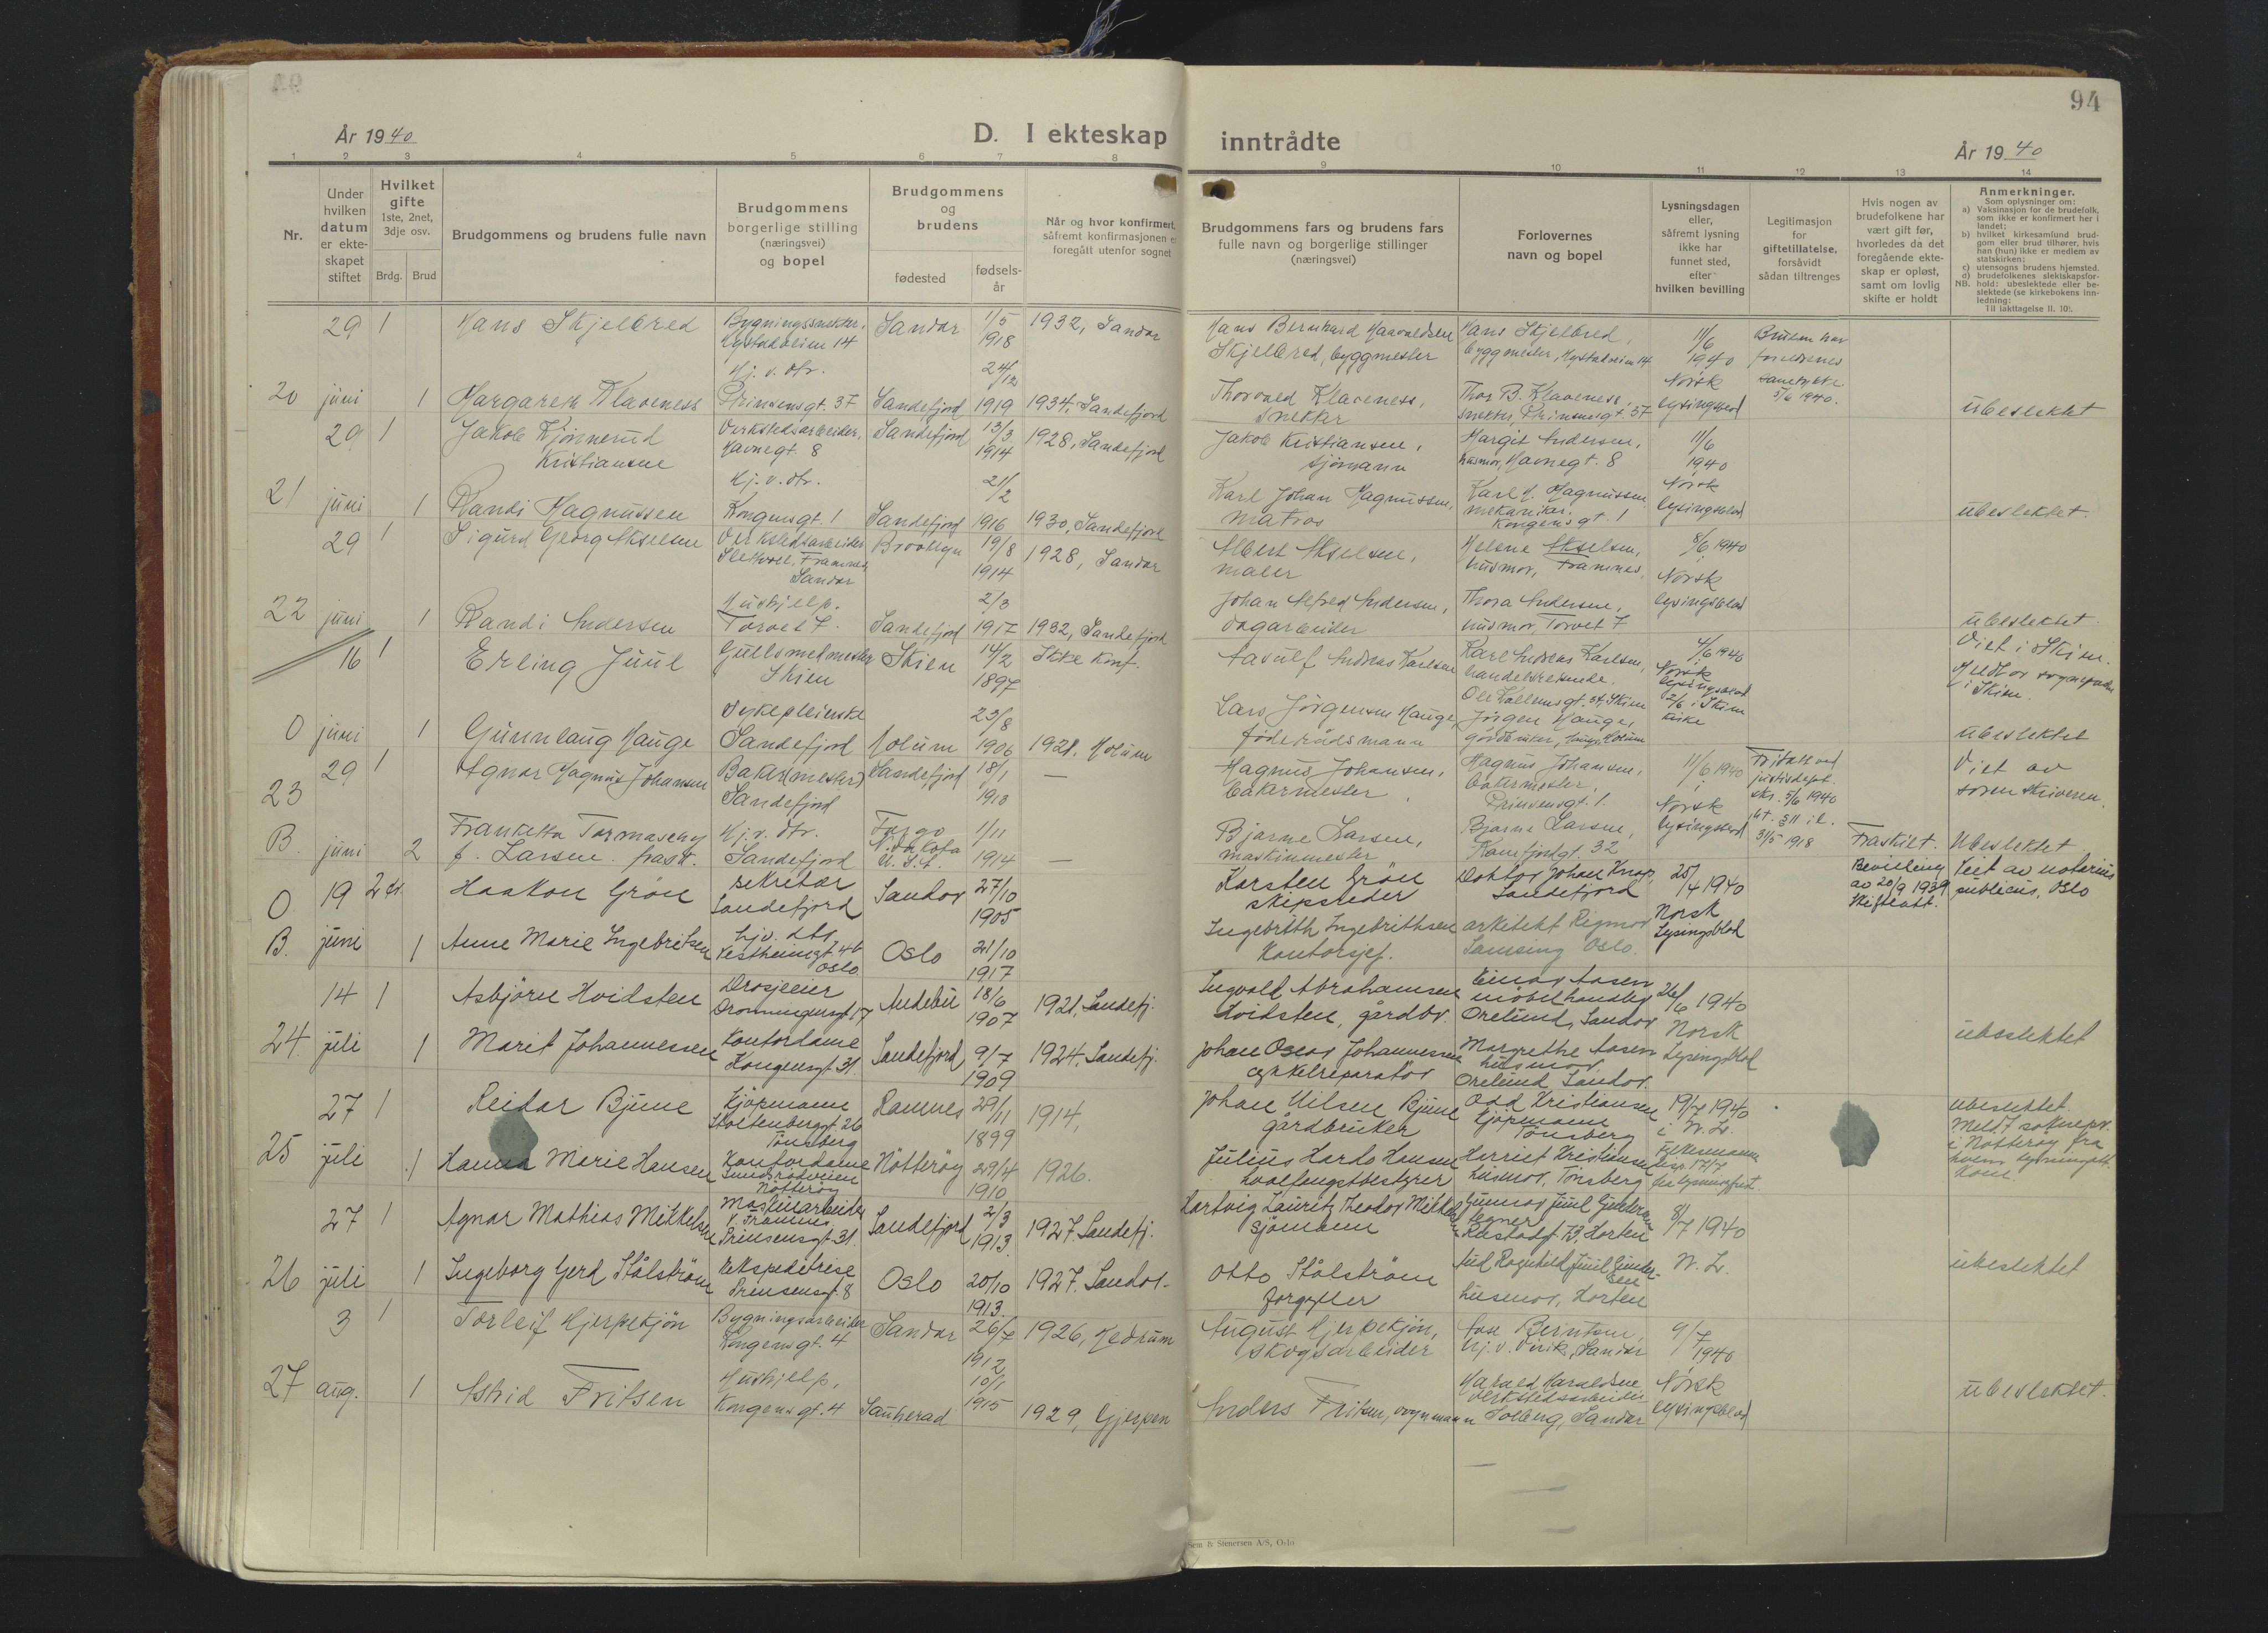 94
År 1940
D. I ekteskap inntrådte
År 1940
1 2 3 4 5 6 7 8 9 10 11 12 13 14
Nr.
Under hvilken datum er ekteskapet stiftet
Hvilket gifte
1ste, 2net, 3dje osv.
Brdg. Brud
Brudgommens og brudens fulle navn
Brudgommens borgerlige stilling (næringsvei) og bopel
Brudgommens og brudens
fødested
fødselsår
Når og hvor konfirmert,
såfremt konfirmasjonen er
foregått utenfor sognet
Brudgommens fars og brudens fars
fulle navn og borgerlige stillinger
(næringsvei)
Forlovernes
navn og bopel
Lysningsdagen
eller,
såfremt lysning
ikke har
funnet sted,
efter
hvilken bevilling
Legitimasjon
for
giftetillatelse,
forsåvidt
sådan tiltrenges
Hvis nogen av
brudefolkene har
vært gift før,
hvorledes da det
foregående ekte-
skap er opløst,
samt om lovlig
skifte er holdt
Anmerkninger.
Som oplysninger om:
a) Vaksinasjon for de brudefolk,
som ikke er konfirmert her i
landet;
b) hvilket kirkesamfund brud-
gom eller brud tilhører, hvis
han (hun) ikke er medlem av
statskirken;
c) utensogns brudens hjemsted.
d) brudefolkenes slektskapsfor-
NB. hold: ubeslektede eller be-
slektede (se kirkebokens inn-
ledning:
Til iakttagelse II. 10).
20
29 juni
1 Hans Skjelbred
Bygningssnekker, Nystadveien 14
Sandar
1/5 1918
1932, Sandar
Hans Bernhard Haavaldsen Skjelbred, byggmester
Hans Skjelbred, byggmester, Nystadveien 14
11/6 1940 Norsk lysingsblad
Bruden har foreldrenes samtykke. 5/6 1940.
1 Margareth Klaveness
Hj. v. dtr. Prinsensgt. 37
Sandefjord
24/12 1919
1934, Sandefjord
Thorvald Klaveness, snekker
Thor B. Klaveness, snekker, Prinsensgt. 37
ubeslektet
21
29 juni
1 Jakob Kjønnerud Kristiansen
Verkstedsarbeider, Havnegt. 8
Sandefjord
13/3 1914
1928, Sandefjord
Jakob Kristiansen, sjømann
Margit Andersen, husmor, Havnegt. 8
11/6 1940 Norsk lysingsblad
1 Randi Magnussen
Hj. v. dtr. Kongensgt. 1
Sandefjord
21/2 1916
1930, Sandefjord
Karl Johan Magnussen, matros
Karl H. Magnussen mekaniker. Kongensgt. 1
ubeslektet.
22
29 juni
1 Sigurd Georg Akselsen
Verkstedsarbeider Framnes, Sandar
Brooklyn
19/8 1914
1928, Sandar
Albert Akselsen, maler
Helene Akselsen, husmor, Framnes.
8/6 1940 Norsk lysingsblad
1 Randi Andersen
Hushjelp. Torvet 7.
Sandefjord
2/3 1917
1932, Sandefjord
Johan Alfred Andersen, dagarbeider
Thora Andersen, husmor, Torvet 7
ubeslektet.
0
16 juni
1 Erling Juul
Gullsmedmester Skien
Skien
14/2 1897
Ikke konf.
Aasulf Andreas Karlsen
Karl Andreas Karlsen, handelsreisende,
4/6 1940 Norsk lysingsblad 2/6 i Skien kirke
Viet i Skien.
i Skien.
1 Gunnlaug Hauge
Sykepleierske Sandefjord
Holum
23/8 1906
1921, Holum
Lars Jörgensen Hauge, föderådsmann
Jörgen Hauge, gårdbruker, Holum
ubeslektet
23
B.
29 juni
1 Agnar Magnus Johansen
Baker(mester) Sandefjord
Sandefjord
18/1 1913
—
Magnus Johansen, bakermester
Magnus Johansen, bakermester, Prinsensgt. 1.
11/6 1940 Norsk lysingsblad
Fritatt ved justisdept. skr. 5/6 1940
31/5 1918
Viet av sorenskriveren.
2 Franketta f. Larsen. frask.
Hj. v. dtr. Sandefjord
Fargo N. Dakota U.S.A.
1/11 1914
—
Bjarne Larsen, maskinmester
Bjarne Larsen, 32
Fraskilt.
Ubeslektet
0
B.
19 juni
2
Haakon Grøn
sekretær Sandefjord
Sandar
27/10 1905
Karsten Grøn skipsreder
Doktor Johan Knap, Sandefjord
25/4 1940 Norsk Lysingsblad
Bevilling av 20/9 1939
Viet av notarius publicus, Oslo
1 Anne Marie Ingebritsen
hjv. dtr Vestheimgt. 4b Oslo
Oslo
21/10 1917
Ingebrith Ingebrithsen Kontorsjef.
arkitekt Rigmor Samsing Oslo.
24.
14 juli
1 Asbjörn Hvidsten
Drosjeeier Dronningensgt 17
Andebu
18/6 1907
1921, Sandefj.
Ingvald Abrahamsen Hvidsten, gårdbr.
Einar Aasen möbelhandler Orelund, Sandar
26/6 1940 Norsk Lysingsblad
1 Marit Johannessen
Kontordame Kongensgt 31.
Sandefjord
9/7 1909
1924, Sandefj.
Johan Oscar Johannessen cykkelreparatör
Margrethe Aasen husmor, Orelund Sandar.
ubeslektet
25
27 juli
1 Reidar Bjune
Kjöpmann Stoltenberggt. 26 Tönsberg
Ramnes
29/11 1899
1914,
Johan Nilsen Bjune gårdbruker
Odd Kristiansen Kjöpmann Tönsberg
19/7 1940 i N. L.
ubeslektet.
1 Hanna Marie Hansen
Kontordame Nötteröy
Nötteröy
29/4 1910
1926.
Julius Hansen hvalfangstbestyrer
Harriet Kristiansen husmor, Tönsberg
26
27 juli
1 Agnar Mathias Mikkelsen
Maskinarbeider v. Framnes, Prinsensgt. 31.
Sandefjord
2/3 1913.
1927. Sandefj.
Hartvig Lauritz Theodor Mikkelsen Sjömann
Gunnar Juul Gundersen tegner 73, Horten
8/7 1940 N. L.
1 Ingeborg Gerd Stålström
Ekspeditrise Prinsensgt. 8
Oslo
20/10 1913.
1927. Sandar.
Otto Stålström forgyller
Ragnhild Juul Gundersen husmor, Horten
ubeslektet
27
3 aug.
1 Torleif Hjerpekjön
Bygningsarbeider Kongensgt. 4
Sandar
26/7 1912
1926, Hedrum
August Hjerpekjön, skogsarbeider
Aase Berntsen, hj. v. Virik, Sandar
9/7 1940 Norsk lysingsblad
1 Astrid Fritsen
Hushjelp, Kongensgt. 4
Sauherad
10/1 1915
1929, Gjerpen
Anders Fritsen, vognmann
Harald Haraldsen verkstedsarbeider Solberg, Sandar
ubeslektet.
Sem & Stenersen A/S, Oslo